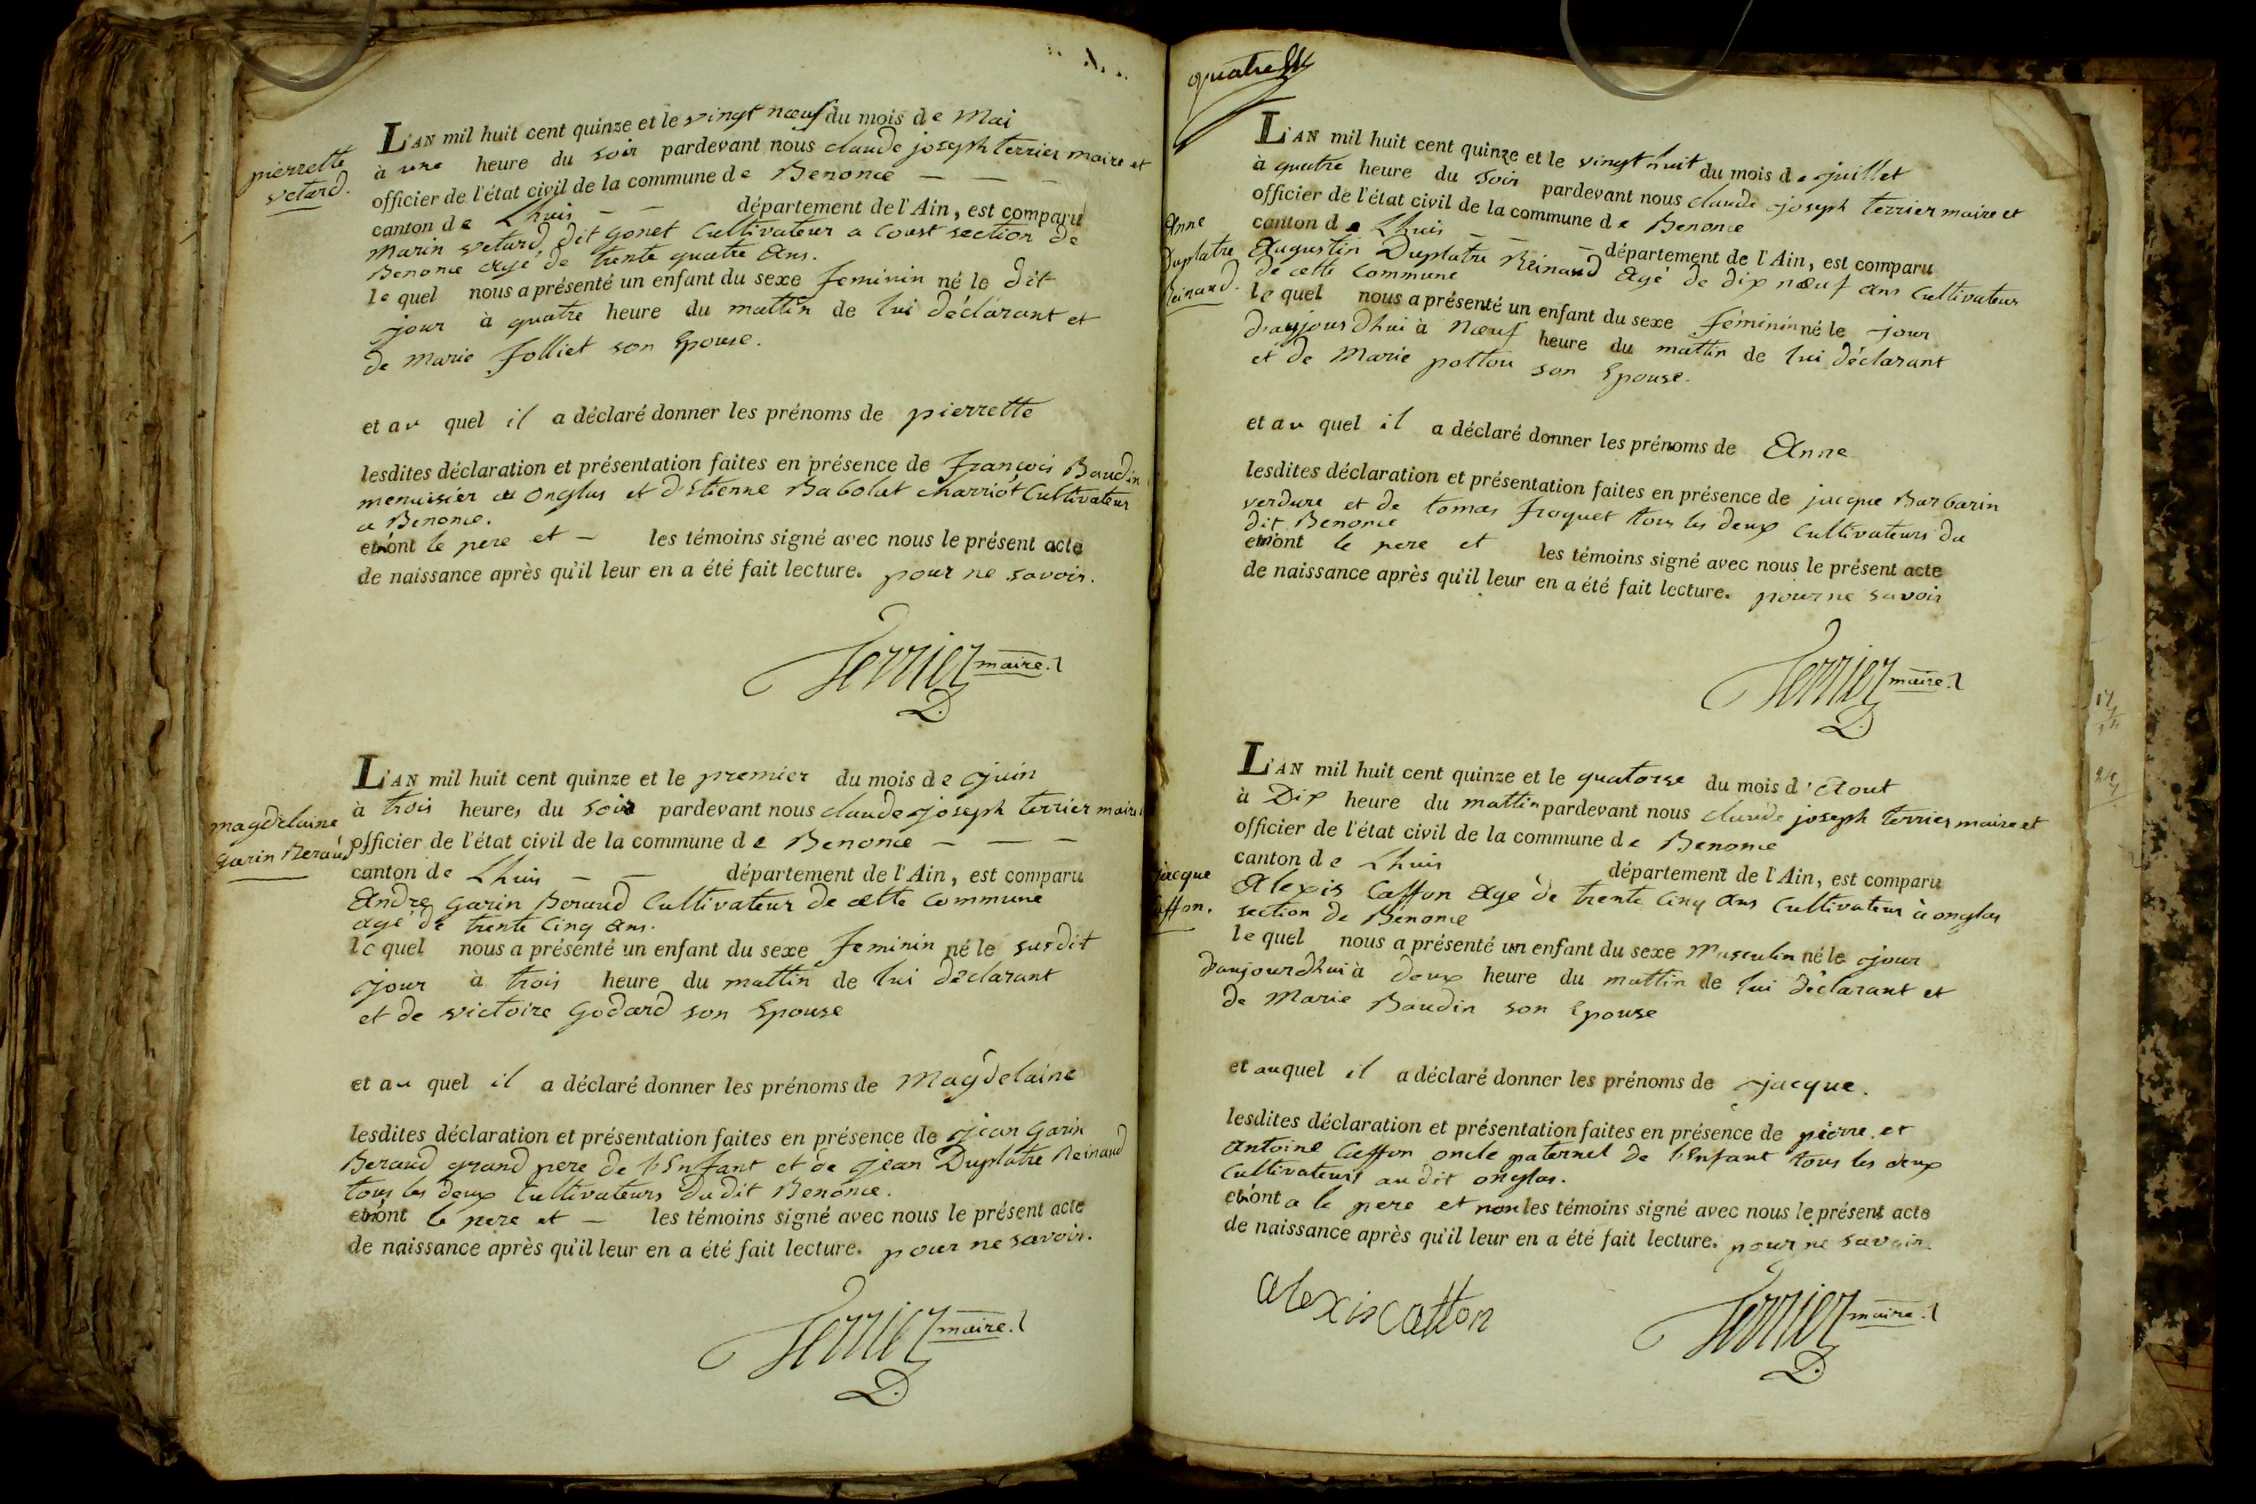 pierrette
vetard.
L'AN mil huit cent quinze et le vingt nœuf du mois de Mai
à une heure du soir pardevant nous claude joseph terrier maire et
officier de l'état civil de la commune de Benonce — — —
canton de Lhuis — — département de l'Ain, est comparu
Marin vetard dit gonet Cultivateur a Coust section de
Benonce agé de trente quatre Ans.
le quel nous a présenté un enfant du sexe feminin né le dit
jour à quatre heure du mattin de lui déclarant et
de Marie folliet son Epouse.
et au quel il a déclaré donner les prénoms de pierrette
lesdites déclaration et présentation faites en présence de françois Baudin
menuisier a onglas et d'Etienne Babolat charriot Cultivateur
a Benonce.
et n'ont le pere et — les témoins signé avec nous le présent acte
de naissance après qu'il leur en a été fait lecture. pour ne savoir.
Terrier maire.
magdelaine
garin Beraud
L'AN mil huit cent quinze et le premier du mois de juin
à trois heures du soir pardevant nous claude joseph terrier maire
officier de l'état civil de la commune de Benonce — — —
canton de Lhuis — — département de l'Ain, est comparu
Andre garin Beraud Cultivateur de cette Commune
agé de trente Cinq Ans.
le quel nous a présenté un enfant du sexe feminin né le susdit
jour à trois heure du mattin de lui déclarant
et de victoire Godard son Epouse
et au quel il a déclaré donner les prénoms de Magdelaine
lesdites déclaration et présentation faites en présence de jean Garin
Beraud grand pere de l'Enfant et de jean Duplatre Reinaud
tous les deux Cultivateurs dudit Benonce.
et n'ont le pere et — les témoins signé avec nous le présent acte
de naissance après qu'il leur en a été fait lecture. pour ne savoir.
Terrier maire.
quatre
Anne
Duplatre
Reinaud.
L'AN mil huit cent quinze et le vingt huit du mois de juillet
à quatre heure du soir pardevant nous claude joseph terrier maire et
officier de l'état civil de la commune de Benonce
canton de Lhuis — — — département de l'Ain, est comparu
Augustin Duplatre Reinaud Agé de dix nœuf ans Cultivateur
de cette Commune
le quel nous a présenté un enfant du sexe féminin né le jour
d'aujourdhui à Nœuf heure du mattin de lui déclarant
et de Marie pottou son Epouse.
et au quel il a déclaré donner les prénoms de Anne
lesdites déclaration et présentation faites en présence de jacque Barbarin
verdure et de tomas froquet tous les deux Cultivateurs du
dit Benonce
et n'ont le pere et les témoins signé avec nous le présent acte
de naissance après qu'il leur en a été fait lecture. pour ne savoir
Terrier maire.
jacque
Caffon.
L'AN mil huit cent quinze et le quatorse du mois d'Aout
à Dix heure du mattin pardevant nous claude joseph terrier maire et
officier de l'état civil de la commune de Benonce
canton de Lhuis département de l'Ain, est comparu
Alexis Caffon Age de trente Cinq Ans Cultivateur à onglas
section de Benonce
le quel nous a présenté un enfant du sexe Masculin né le jour
d'aujourdhui à deux heure du mattin de lui déclarant et
de Marie Baudin son Epouse
et auquel il a déclaré donner les prénoms de jacque.
lesdites déclaration et présentation faites en présence de pierre et
Antoine Caffon oncle paternel de l'Enfant tous les deux
Cultivateurs audit onglas.
et ont a le pere et non les témoins signé avec nous le présent acte
de naissance après qu'il leur en a été fait lecture. pour ne savoir
alexis catton
Terrier maire.